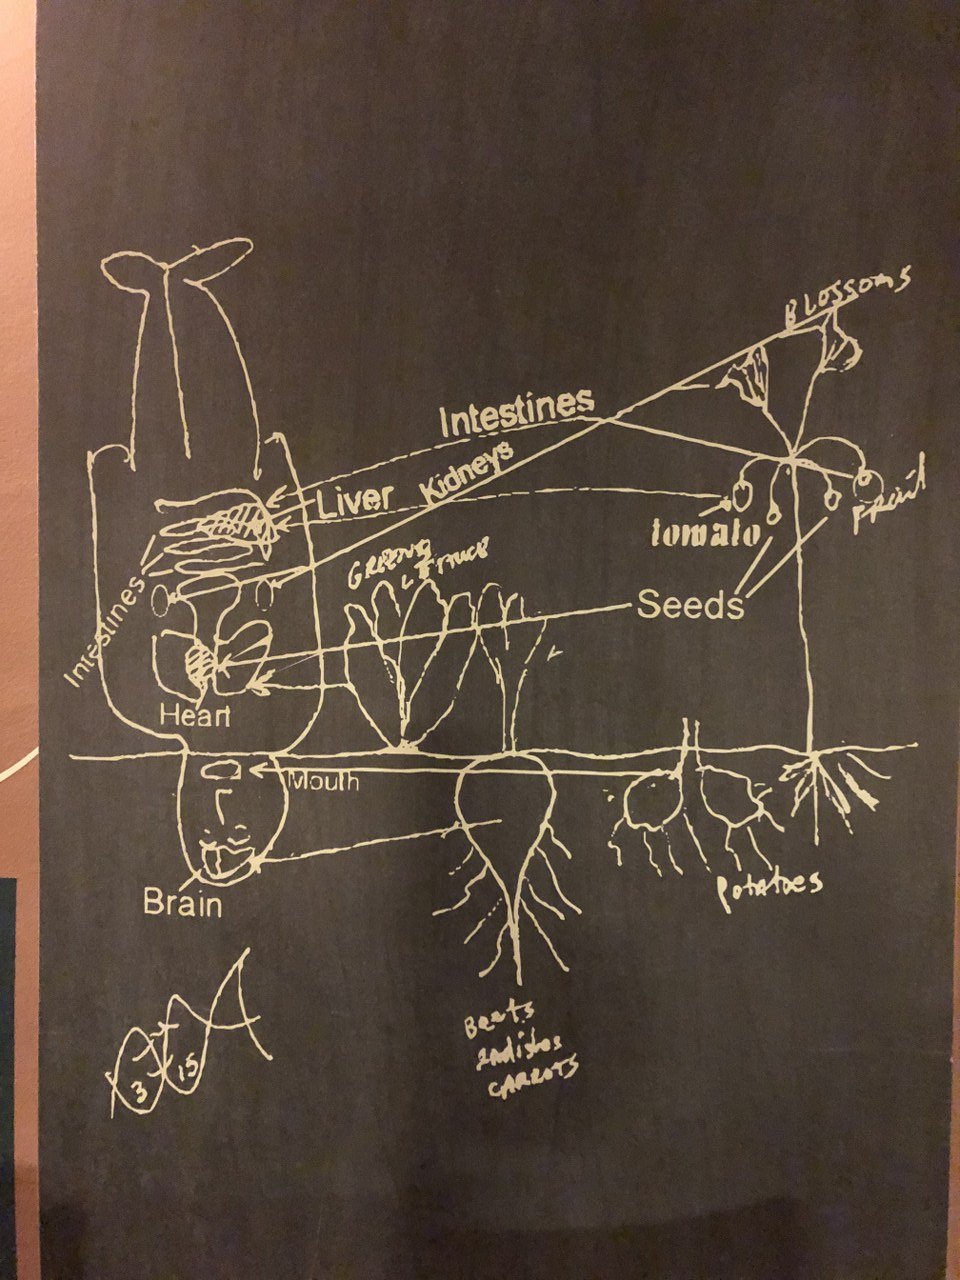 BLOSSOMS
Intestines
Kidneys
Liver
Fruit
tomato
Intestines
Seeds
Heart
Mouth
Potatoes
Brain
Beets
radishes
CARROTS
3
15